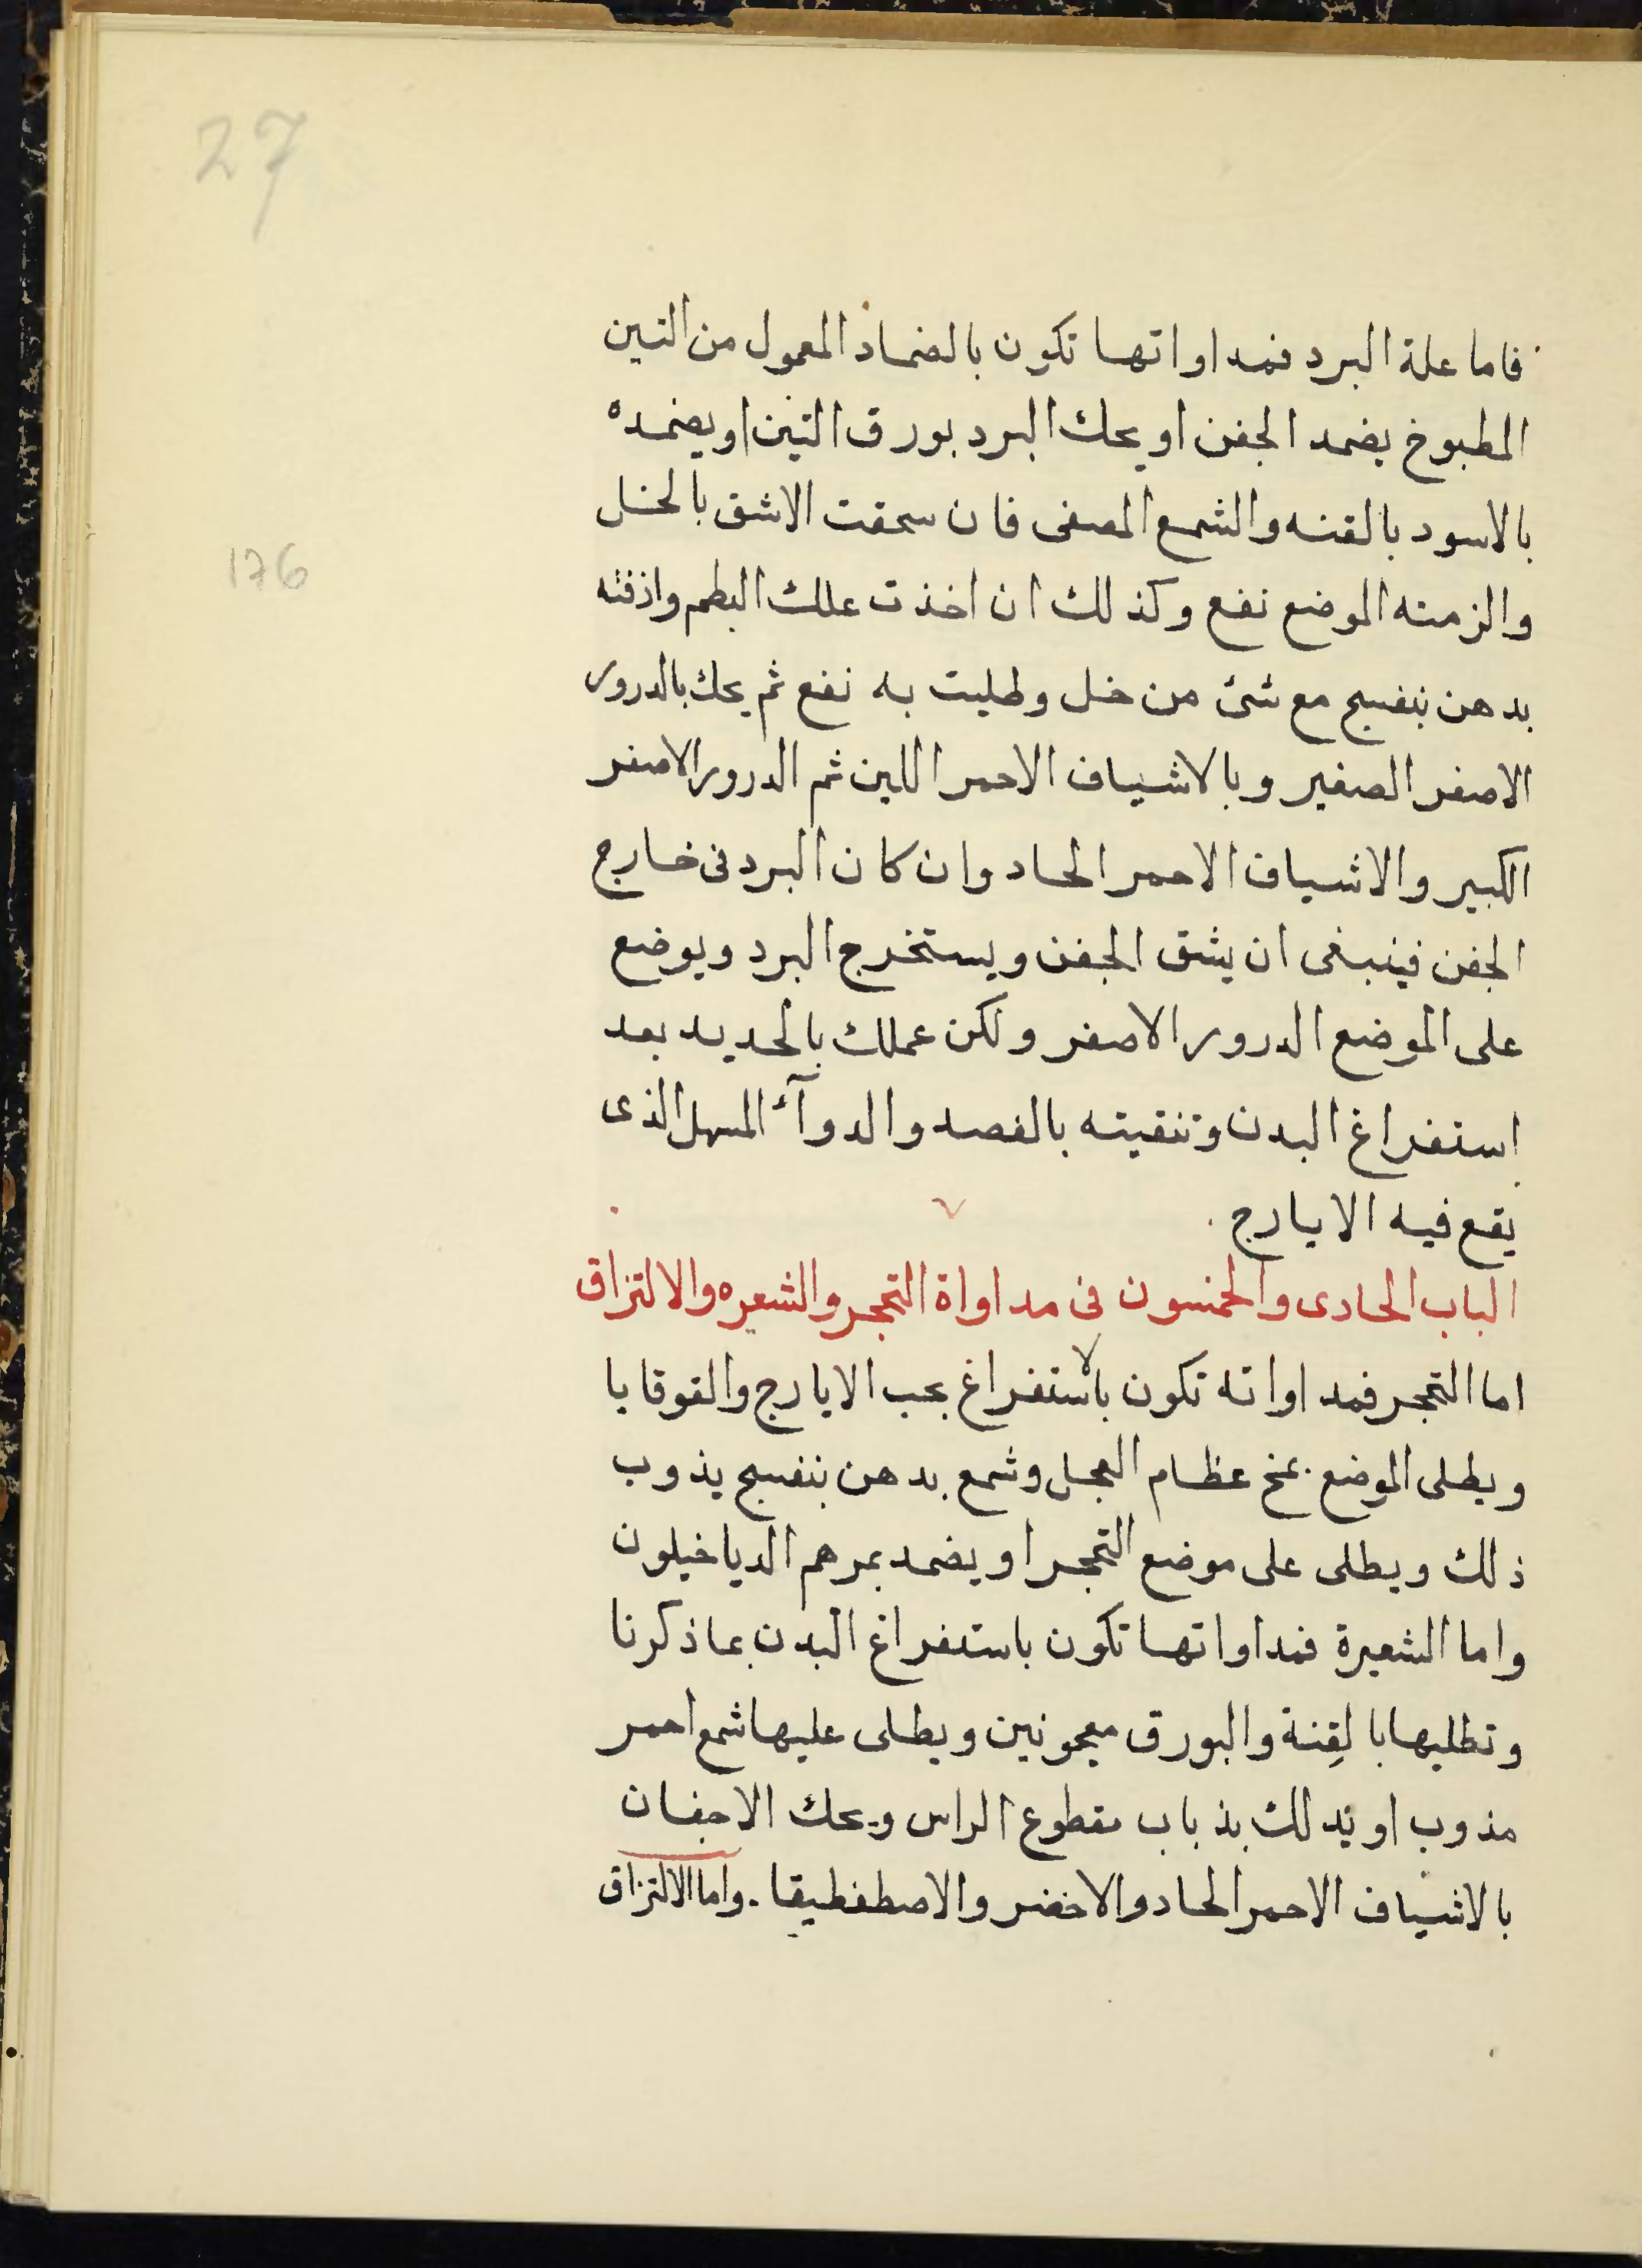 27
فاما علة البرد فمداواتها تكون بالضماد المعمول من التين
المطبوخ يضمد الجفن او يحك البرد بورق التين او يضمده
بالاسود بالقنه والشمع المصفى فان سحقت الاشق بالخل
والزمته الموضع نفع وكذلك ان اخذت علك البطم واذفته
176
بدهن بنفسج مع شئ من خل وطليت به نفع ثم يحك بالدرور
الاصفر الصغير وبالاشياف الاحمر اللين ثم الدرور الاصفر
الكبير والاشياف الاحمر الحاد وان كان البرد فى خارج
الجفن فينبغى ان يشق الجفن ويستخرج البرد ويوضع
على الموضع الدرور الاصفر ولكن عملك بالحديد بعد
استفراغ البدن وتنقيته بالفصد والدوآء المسهل الذى
يقع فيه الايارج
الباب الحادى والخمسون فى مداواة التحجر والشعيره والالتزاق
اما التحجر فمداواته تكون بالاستفراغ بحب الايارج والقوقايا
ويطلى الموضع بمخ عظام العجل وشمع بدهن بنفسج يذوب
ذلك ويطلى على موضع التحجر او يضمد بمرهم الدياخيلون
واما الشعيرة فمداواتها تكون باستفراغ البدن بما ذكرنا
وتطليها بالقِنة والبورق معجونين ويطلى عليها شمع احمر
مذوب او تدلك بذباب مقطوع الراس ويحك الاجفان
بالاشياف الاحمر الحاد والاخضر والاصطفطيقا. واما الالتزاق